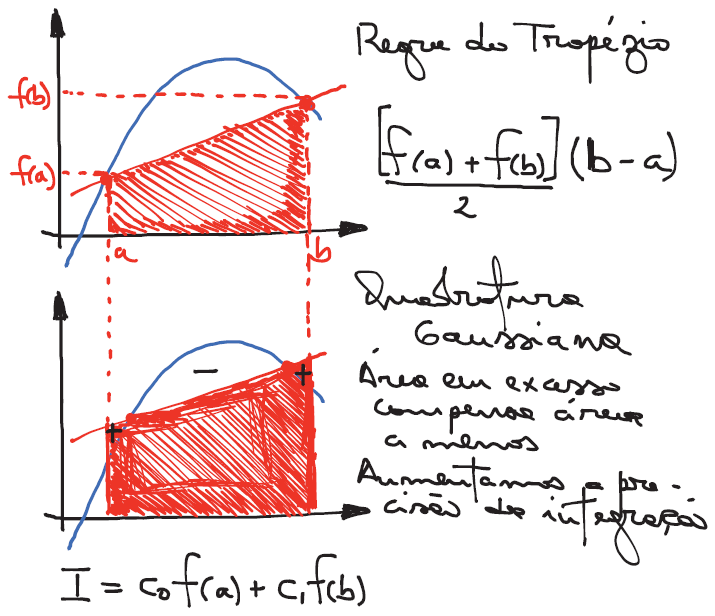 Regra do Trapézio
f(b)
f(a)
[f(a) + f(b)] (b - a)
2
a
b
Quadratura
Gaussiana
-
+
+
Área em excesso
compensa área
a menos
Aumentamos a pre-
cisão de integração
I = c₀f(a) + c₁f(b)